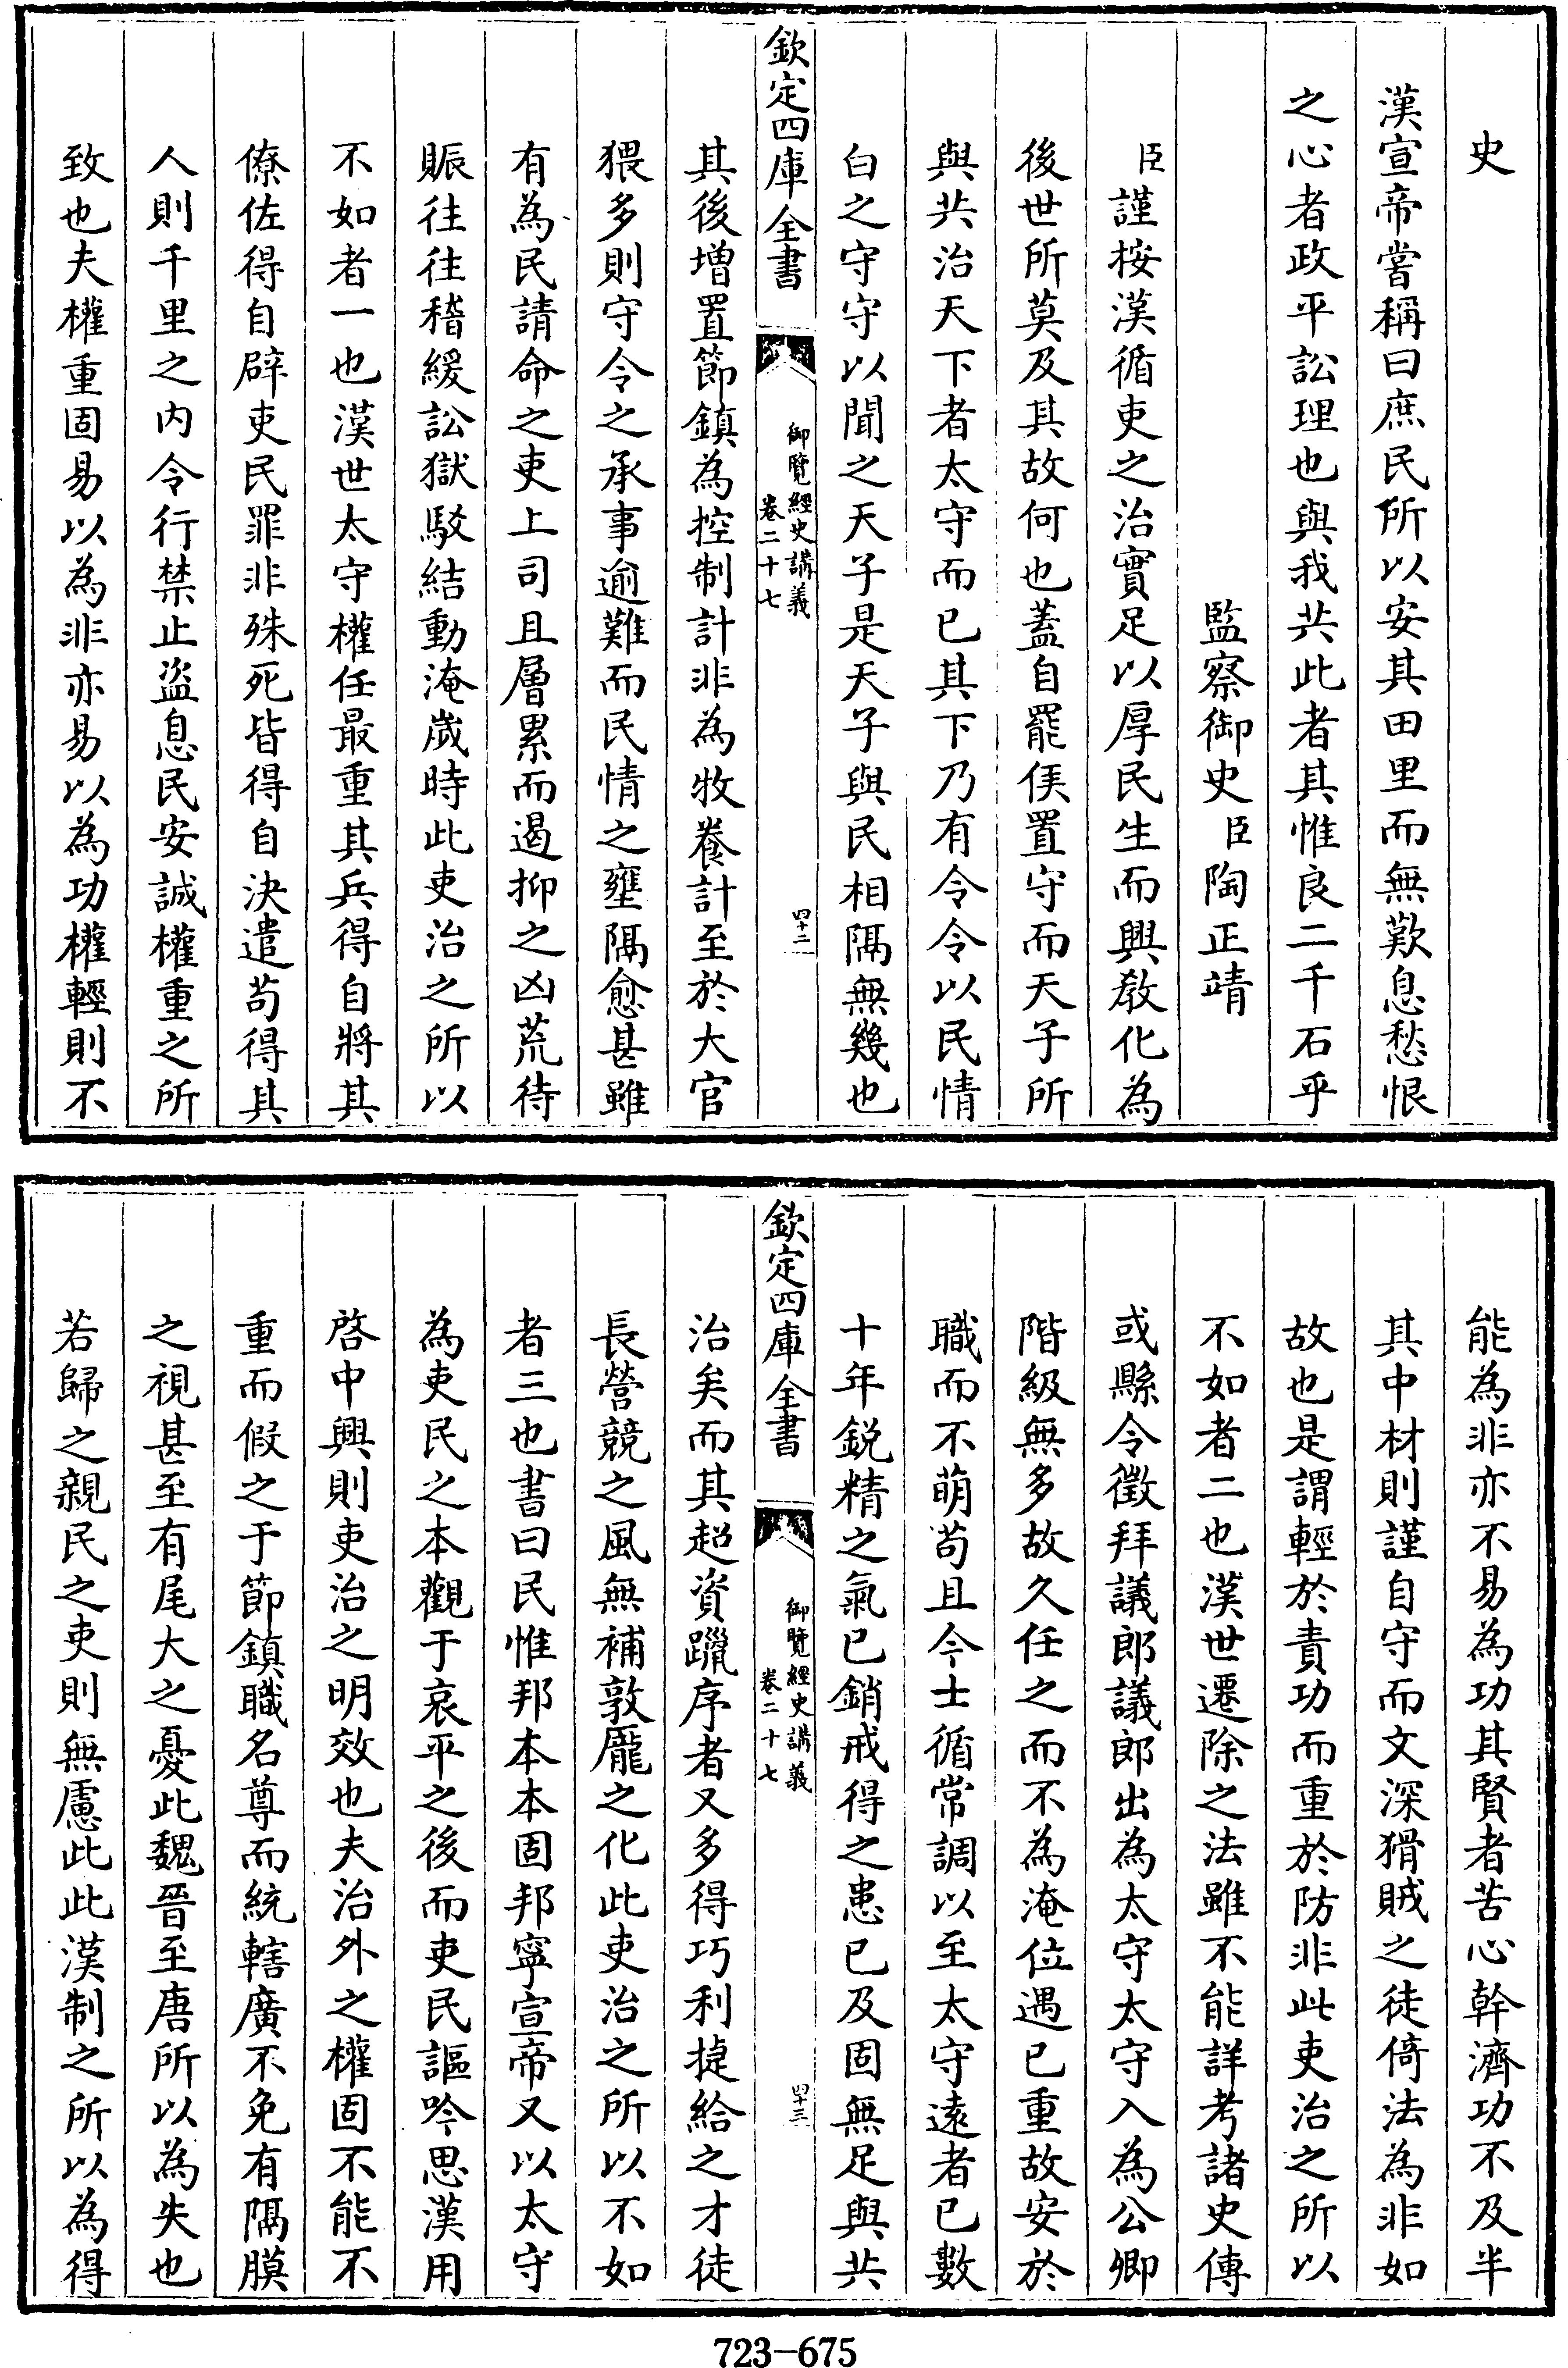 史
漢宣帝嘗稱曰庶民所以安其田里而無歎息愁恨
之心者政平訟理也與我共此者其惟良二千石乎
監察御史臣陶正靖
臣謹按漢循吏之治實足以厚民生而興教化為
後世所莫及其故何也蓋自罷侯置守而天子所
與共治天下者太守而已其下乃有令令以民情
白之守守以聞之天子是天子與民相隔無幾也
欽定四庫全書
御覽經史講義
卷二十七
四十二
其後增置節鎮為控制計非為牧養計至於大官
猥多則守令之承事逾難而民情之壅隔愈甚雖
有為民請命之吏上司且層累而遏抑之凶荒待
賑往往稽緩訟獄駁結動淹嵗時此吏治之所以
不如者一也漢世太守權任最重其兵得自將其
僚佐得自辟吏民罪非殊死皆得自決遣苟得其
人則千里之内令行禁止盜息民安誠權重之所
致也夫權重固易以為非亦易以為功權輕則不
能為非亦不易為功其賢者苦心幹濟功不及半
其中材則謹自守而文深猾賊之徒倚法為非如
故也是謂輕於責功而重於防非此吏治之所以
不如者二也漢世遷除之法雖不能詳考諸史傳
或縣令徵拜議郎議郎出為太守太守入為公卿
階級無多故久任之而不為淹位遇已重故安於
職而不萌苟且今士循常調以至太守遠者已數
十年鋭精之氣已銷戒得之患已及固無足與共
欽定四庫全書
御覽經史講義
卷二十七
四十三
治矣而其超資躐序者又多得巧利捷給之才徒
長營競之風無補敦龎之化此吏治之所以不如
者三也書曰民惟邦本本固邦寧宣帝又以太守
為吏民之本觀于哀平之後而吏民謳吟思漢用
啓中興則吏治之明效也夫治外之權固不能不
重而假之于節鎮職名尊而統轄廣不免有隔膜
之視甚至有尾大之憂此魏晉至唐所以為失也
若歸之親民之吏則無慮此此漢制之所以為得
723—675